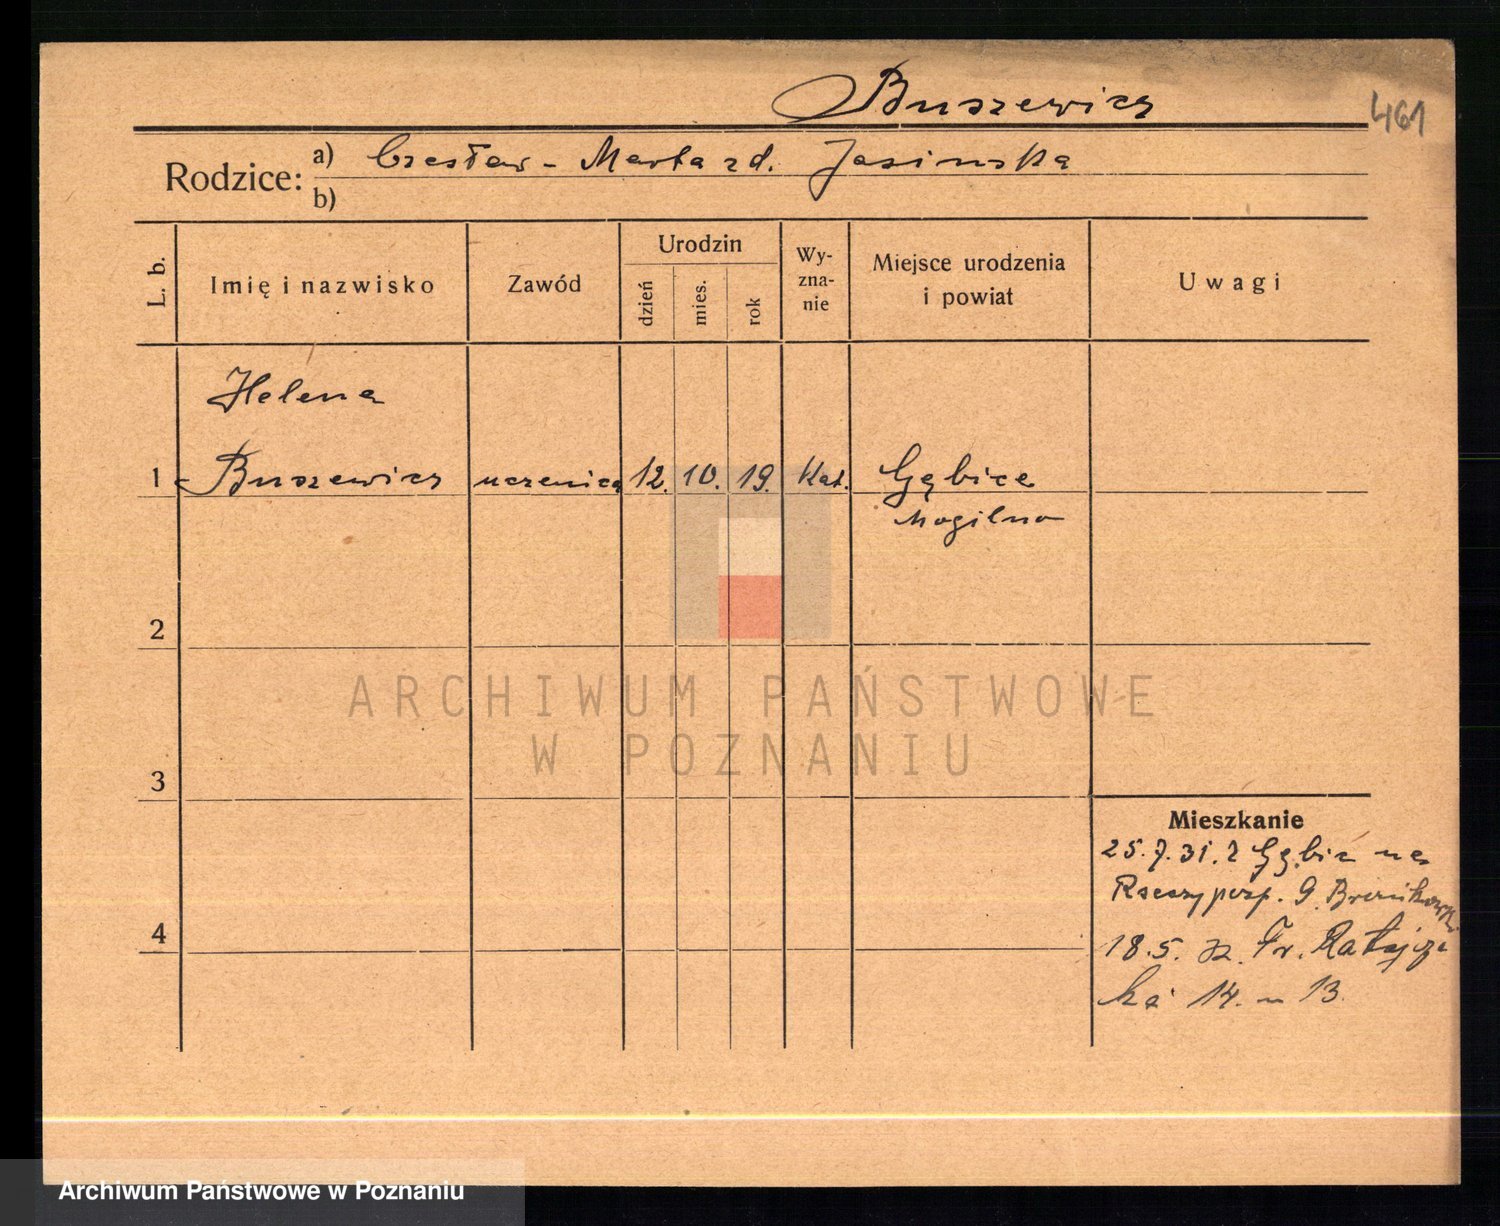 Buszewicz
461
Rodzice: a) Czesław - Marta zd. Jasinska
b)
L. b.
Imię i nazwisko
Zawód
Urodzin
dzień
mies.
rok
Wy-
zna-
nie
Miejsce urodzenia
i powiat
Uwagi
Helena
1 Buszewicz uczenica 12. 10. 19. Kat. Gębice
Mogilno
2
3
4
ARCHIWUM PAŃSTWOWE
W POZNANIU
Mieszkanie
25.7.31. z Gębic na
Rzeczyposp. 9.
18.5. 32. Fr. Ratajcza
ka 14. m 13.
Archiwum Państwowe w Poznaniu